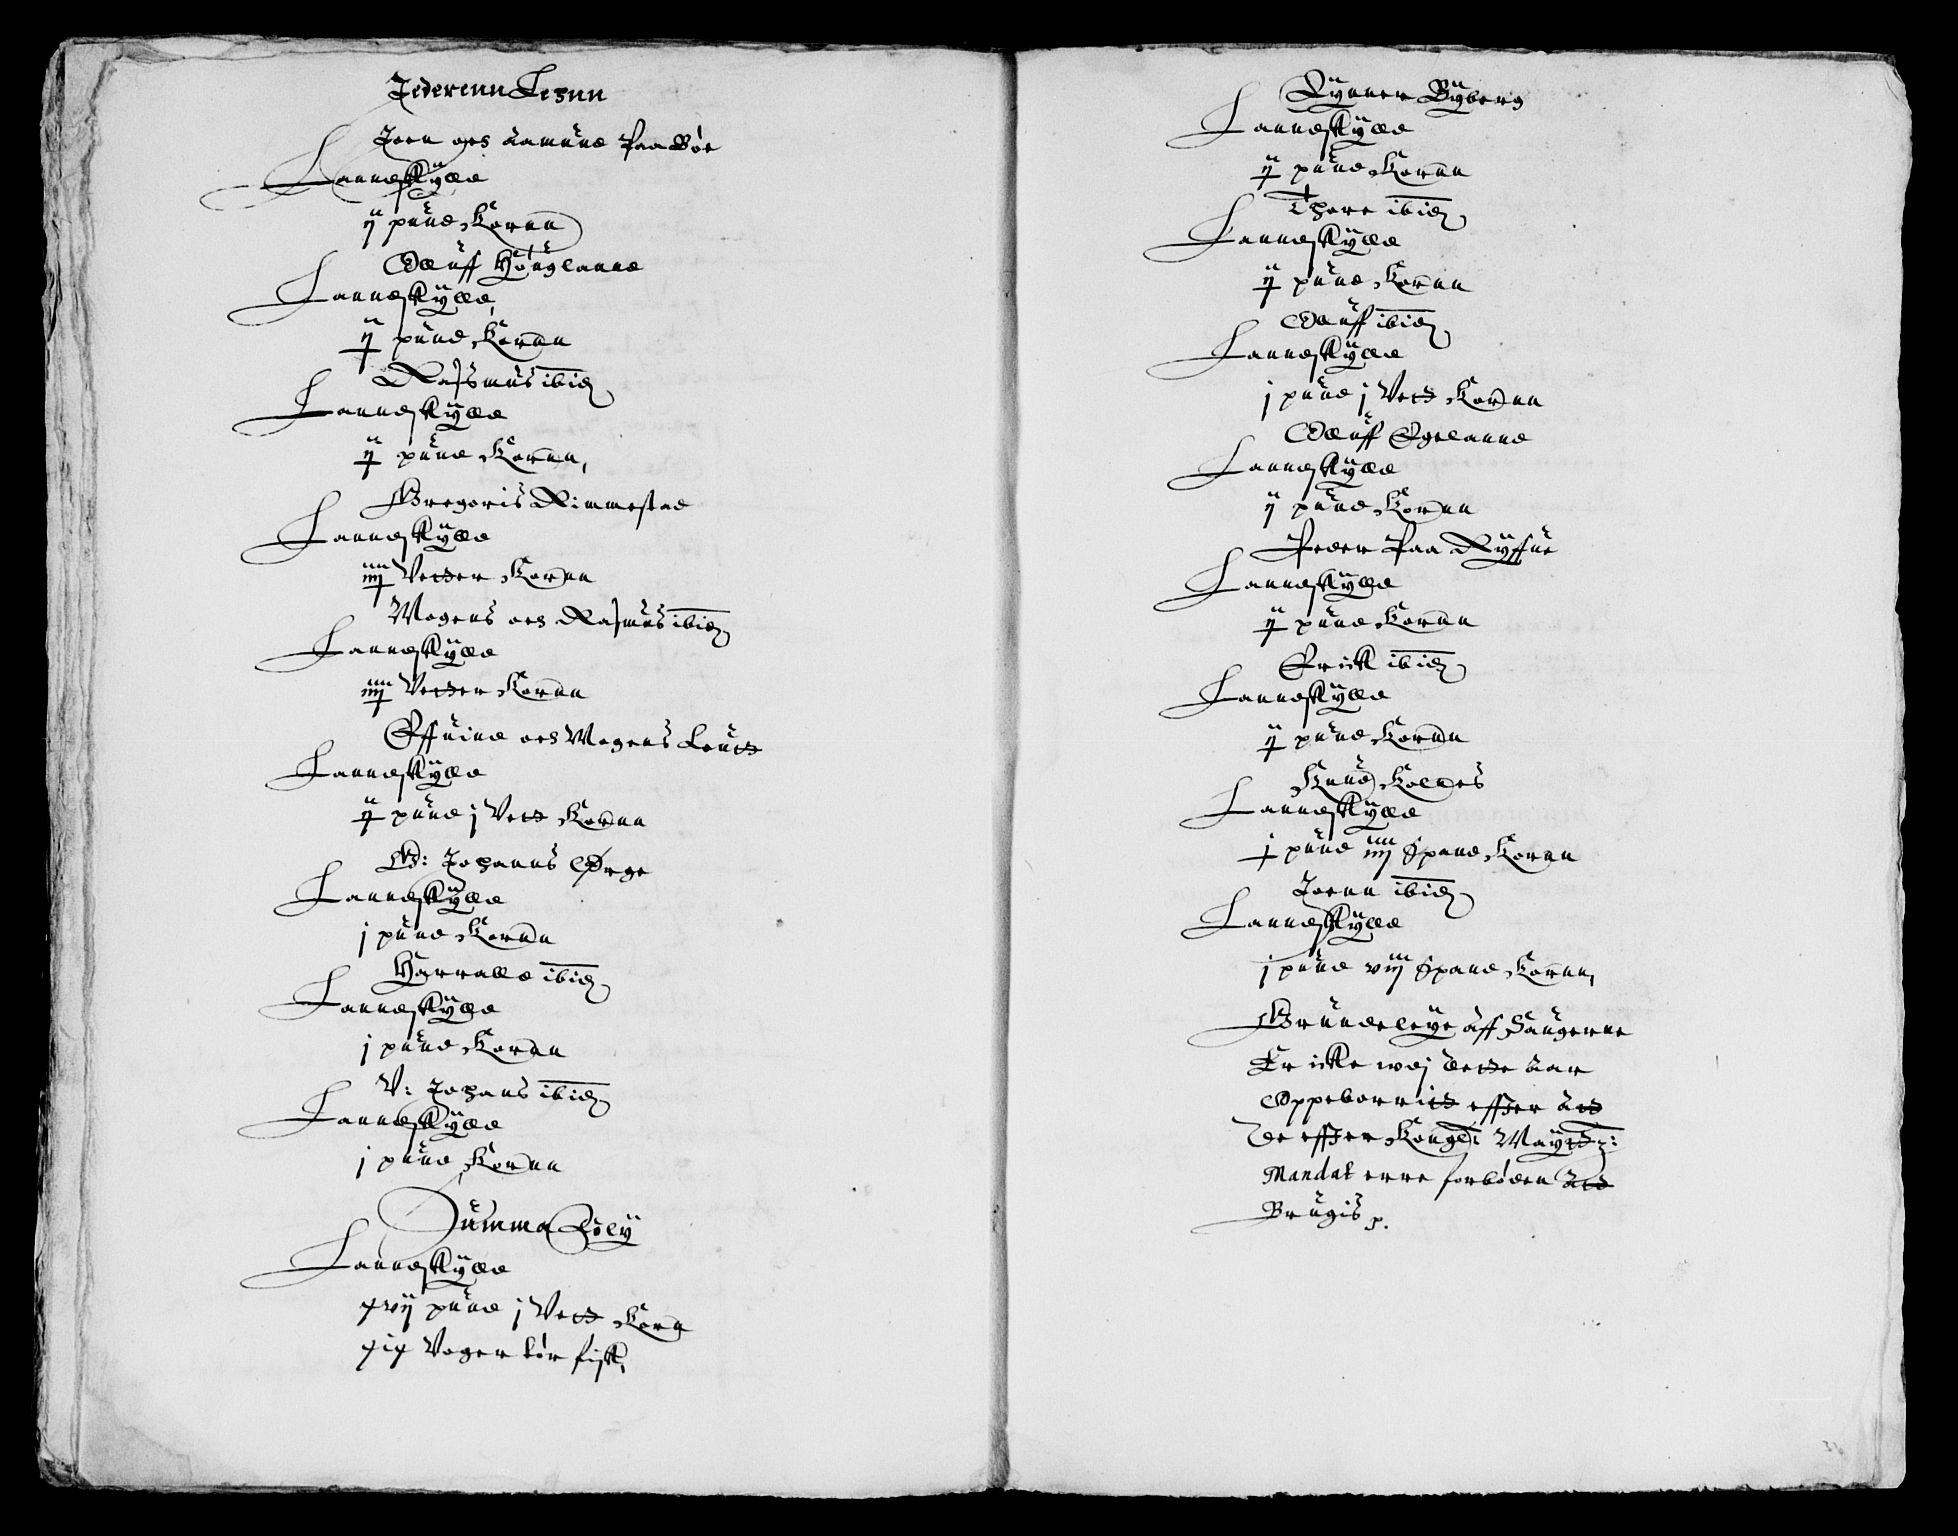 Jederenn Lehnn
Joen och Aamund Paa Bøe
Landschyld
ij pund Kornn
Oluff Høuglannd
Landschyld
ij pund Kornn
Rasmus ibid
Landschyld
ij pund Kornn,
Gregoris Rimmestad
Landschyld
iiij Vetter Kornn
Mogens och Rasmus ibid
Landschyld
iiij Vetter Kornn
Effuind och Mogens
Landschyld
ij pund j Vett Kornn
G: Johanns Ørge
Landschyld
j pund Kornn
Harrald ibid
Landschyld
j pund Kornn
V: Johans ibid
Landschyld
j pund Kornn
Summa
Landschyld
xvij pund j Vett Korn
xix Voger tør fisk,
Gunner Byberg
Landschyld
ij pund Kornn
Thore ibid
Landschyld
ij pund Kornn
Oluff ibid
Landschyld
j pund j Vett Kornn
Oluff Egelannd
Landschyld
ij pund Kornn
Peder Paa Ryffue
Landschyld
ij pund Kornn
Erick ibid
Landschyld
ij pund Kornn
Knud Koldes
Landschyld
j pund iiij Spand Kornn
Joenn ibid
Landschyld
j pund viij Spand Kornn,
Grundeleye aff Saugerne
Er icke wdj dette Aar
Oppeborritt effter att
de effter Kongl: Maytz:
Mandat erre forbøden att
Brugis p.